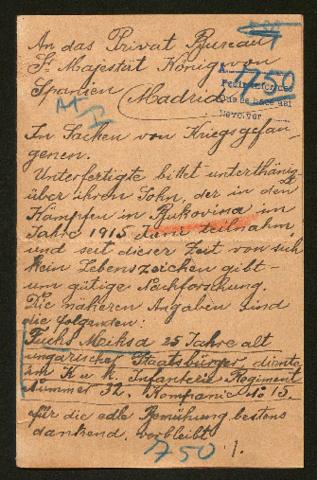 An das Privat Bureau
Sr Majestät König von
Spanien
Madrid
1750
In Sachen von Kriegsgefan-
genen.
Unterfertigte bittet unterthänig
über ihren Sohn, der in den
Kämpfen in Bukovina im
Jahre 1915 teilnahm,
und seit dieser Zeit von sich
kein Lebenszeichen gibt-
um gütige Nachforschung.
Die näheren Angaben sind
die folgenden:
Fuchs Miksa 25 Jahre alt
ungarischer Staatsbürger, diente
am K u k Infanterie Regiment
Nummer 32. Kompanie No 13.
für die edle Bemühung bestens
dankend, verbleibt
./.
1750